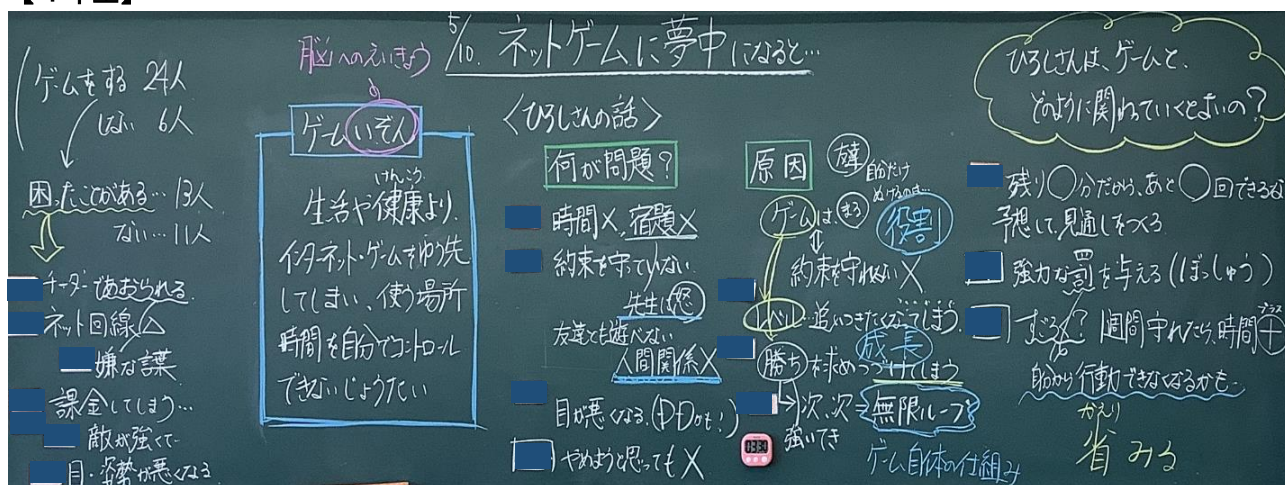 5/10. ネットゲームに夢中になると…
ゲームをする 24人
しない 6人
困ったことがある… 13人
ない… 11人
チーターであおられる
ネット回線△
嫌な言葉
課金してしまう…
敵が強くて…
目・姿勢が悪くなる
脳へのえいきょう
ゲームいぞん
けんこう
生活や健康より、
インターネット・ゲームをゆう先
してしまい、使う場所
時間を自分でコントロール
できないじょうたい
〈ひろしさんの話〉
何が問題?
時間×、宿題×
約束を守っていない
先生は怒
友達とも遊べない
人間関係×
目が悪くなる。(PDも!)
やめようと思っても×
原因
自分だけ
ぬけるのは…
役割
ゲームは、
約束を守れない×
レベル…追いつきたくなってしまう。
成長
勝ちを求めつづけてしまう
→次、次=無限ループ
強いてき
ゲーム自体の仕組み
ひろしさんは、ゲームと、
どのように関わっていくとよいの?
残り○分だから、あと○回できるな
予想して、見通しをつくる
強力な罰を与える(ぼっしゅう)
週間守れたら、時間
プラス
+
自分から行動できなくなるかも…
かえり
省みる